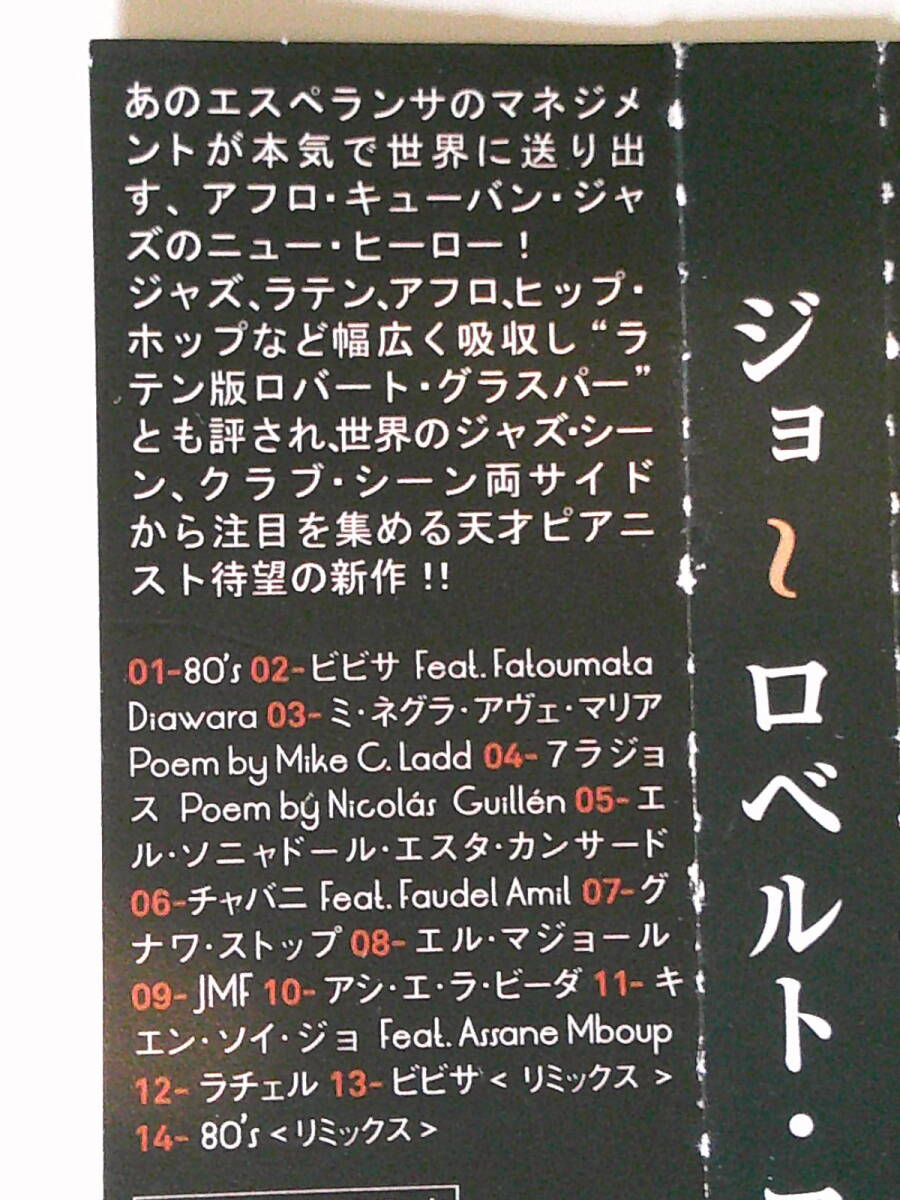 あのエスペランサのマネジメ
ントが本気で世界に送り出
す、アフロ・キューバン・ジャ
ズのニュー・ヒーロー！
ジャズ、ラテン、アフロ、ヒップ・
ホップなど幅広く吸収し“ラ
テン版ロバート・グラスパー”
とも評され、世界のジャズ・シー
ン、クラブ・シーン両サイド
から注目を集める天才ピアニ
スト待望の新作!!
01-80's 02-ビビサ Feat. Fatoumata
Diawara 03-ミ・ネグラ・アヴェ・マリア
Poem by Mike C. Ladd 04-７ラジョ
ス Poem by Nicolás Guillén 05-エ
ル・ソニャドール・エスタ・カンサード
06-チャバニ Feat. Faudel Amil 07-グ
ナワ・ストップ 08-エル・マジョール
09-JMF 10-アシ・エ・ラ・ビーダ 11-キ
エン・ソイ・ジョ Feat. Assane Mboup
12-ラチェル 13-ビビサ<リミックス>
14-80's<リミックス>
ジョ〜ロベルト・